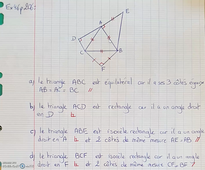 E
A
D
C
B
F
a) le triangle ABC est équilatéral car il a ses 3 côtés égaux
AB = AC = BC //
b) le triangle ACD est rectangle car il a un angle droit
en D
c) le triangle ABE est isocèle rectangle car il a un angle
droit en A et 2 côtés de même mesure AE = AB //
d) le triangle BCF est isocèle rectangle car il a un angle
droit en F et 2 côtés de même mesure CF = BF